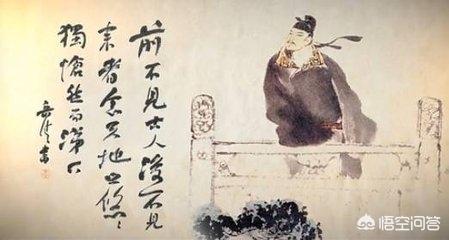 前不見古人後不見
来者念天地之悠〻
獨愴然而涕下
悟空问答